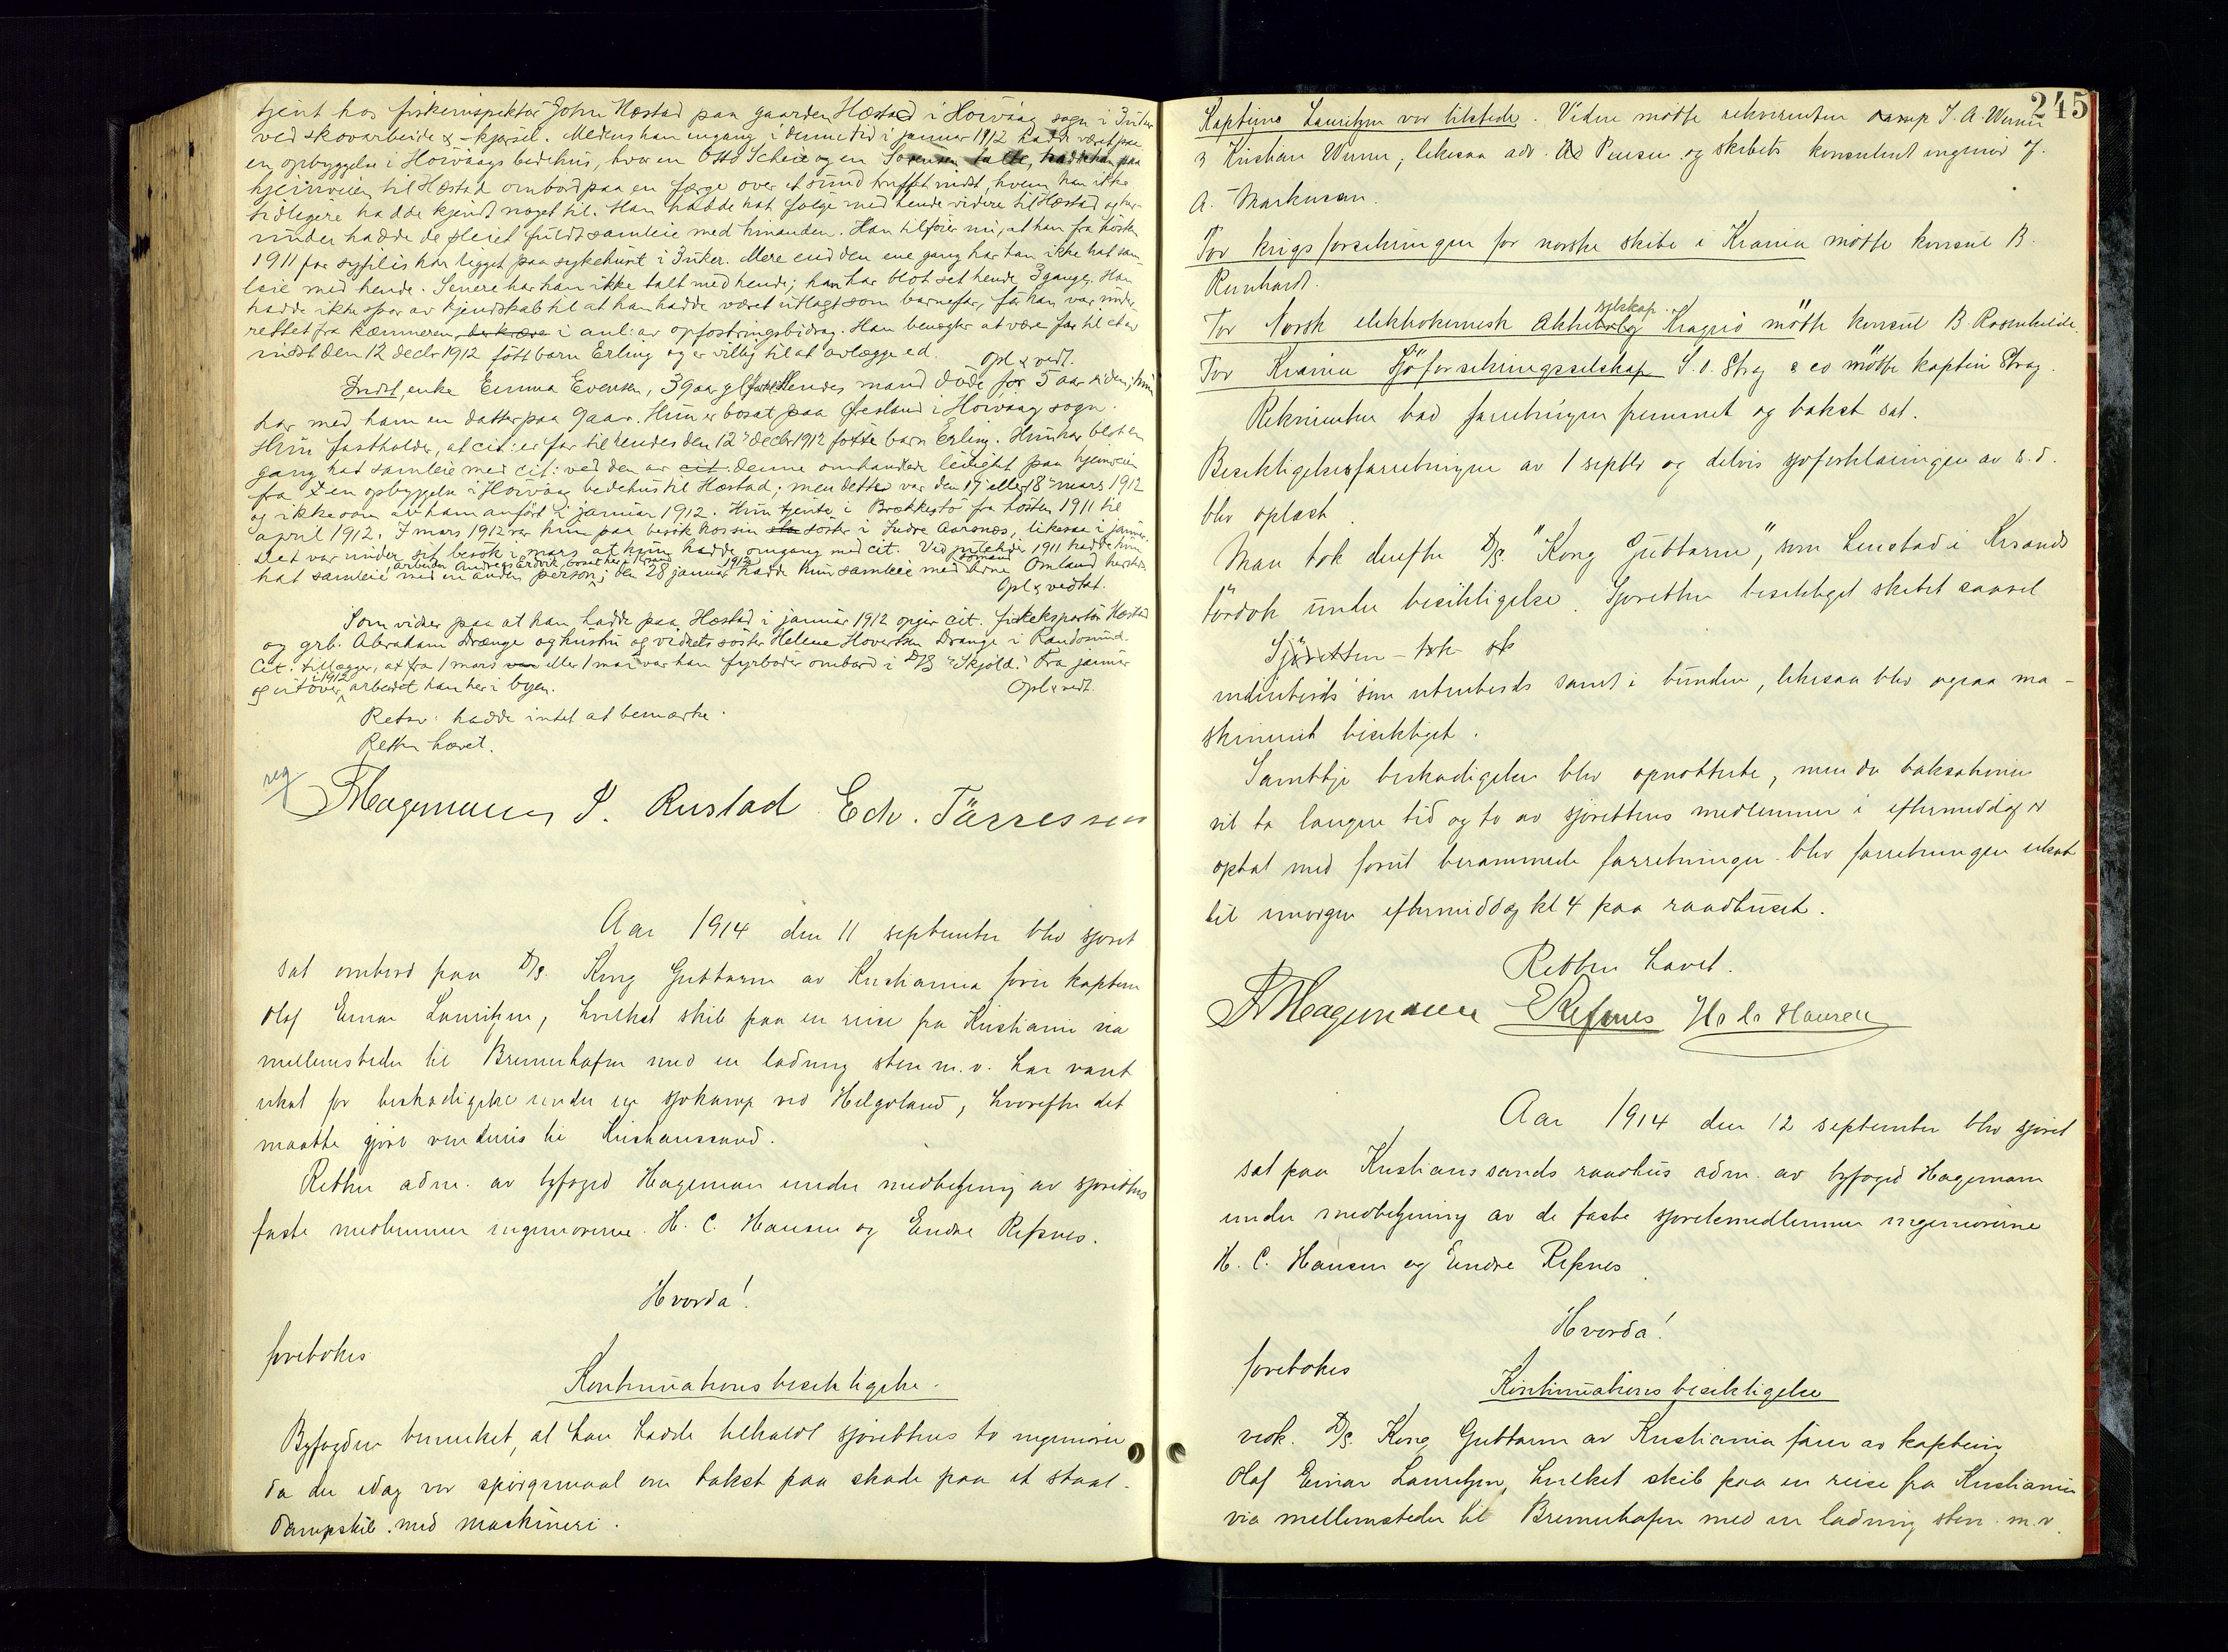 tjent hos fiskeinspektør John Hæstad paa gaarden Hæstad i Høivaag sogn i
ved skovarbeide & -kjørsel. Medens han engang i denne tid i januar 1912 hadde været paa
en opbyggelse i Høivaags bedehus, hvor en Otto Scheie og en Sørensen talte, hadde han paa
hjemveien til Hæstad ombord paa en færge over et sund truffet indst, hvem han ikke
tidligere hadde kjendt noget til. Han hadde hat følge med hende videre til Hæstad og her-
under hadde de pleiet fuldt samleie med hinanden. Han tilføier nu, at han fra høsten
1911 for syfilis har ligget paa sykehuset i Mere end den ene gang har han ikke hat sam-
leie med hende. Senere har han ikke talt med hende; han har blot set hende 3 gange. Han
hadde ikke spor av kjendskab til at han hadde været utlagt som barnefar, før han var under
rettet fra kæmneren i anl: av opfostringsbidrag. Han benegter at være far til et av
indst den 12 decbr 1912 født barn Erling og er villig til at avlægge ed. Opl & vedt.
Indst, enke Emma Evensen, 39 aar gl. Hendes mand døde for 5 aar siden; hun
har med ham en datter paa 9 aar. Hun er bosat paa Øresland i Høivaag sogn.
Hun fastholder, at cit: er far til hendes den 12te decbr 1912 fødte barn Erling. Hun har blot en
gang hat samleie med cit: ved den av cit. denne omhandlede leilighet paa hjemveien
fra en opbyggelse i Høivaag bedehus til Hæstad; men dette var den 17 eller 18de mars 1912
og ikke som av ham anført i januar 1912. Hun tjente i Brækkestø fra høsten 1911 til
april 1912. I mars 1912 var hun paa besøk hos sin søster i Indre Aarsnes, likesaa i januar.
Det var under sit besøk i mars at hun hadde omgang med cit. Ved juletider 1911 hadde hun
arbeider Andreas bosat her i Krsand 1912 sømand
hat samleie med en anden person; den 28 januar hadde hun samleie med Arne Omland
Opl & vedtat.
Som vidner paa at han hadde paa Hæstad i januar 1912 opgir cit. fiskeksportør Hæstad
og grb. Abraham Drange og hustru og vidnets søster Helene Hovertsen Drange i Randøsund.
Cit. tillægger, at fra 1 mars eller 1 mai var han fyrbøder ombord i D/S "Skjold." Fra januar
i 1912
og utover arbeidet han her i byen. Opl & vedt.
Retsv: hadde intet at bemærke.
Retten hævet.
reg
FHagemann P. Rustad Edv. Tärressen
Aar 1914 den 11 september blev sjøret
sat ombord paa D/S. Kong Guttorm av Kristiania fører kaptein
Olaf Einar Lauritzen, hvilket skib paa en reise fra Kristiania via
mellemsteder til Bremerhafen med en ladning sten m.v. har været
utsat for beskadigelse under en sjøkamp ved Helgoland, hvorefter det
maatte gjøre vendereis til Kristianssand.
Retten adm. av byfoged Hageman under medbetjening av sjørettens
faste medlemmer ingeniørerne H. C. Hansen og Endre Refsnes.
Hvorda!
foretokes
Kontinuationsbesiktigelse.
Byfogden bemerket, at han hadde tilkaldt sjørettens to ingeniører
da der idag var spørgsmaal om takst paa skade paa et staal-
dampskib med maskineri.
245
Kaptein Lauritzen var tilstede. Videre møtte rekvirenten J. A. Werner
& Kristian Werner, likesaa adv. Pensen og skibets konsulent ingeniør
A. Markusen.
For krigsforsikringen for norske skibe i Krania møtte konsul B.
Reinhardt.
selskap
For Norsk elektrokemisk Aktie Kragerø møtte konsul B. Rosenkilde.
For Krania Sjöforsikringsselskap S. O. Stray & co møtte kaptein Stray.
Rekvirenten bad forretningen fremmet og takst sat.
Besiktigelsesforretningen av 1 septbr og delvis sjøforklaringen av s.d.
blev oplæst.
Man tok derefter D/S. "Kong Guttorm", som henstod i Krsands
tördok under besiktigelse. Sjøretten besiktiget skibet saavel
Sjøretten - tok
indenbords som utenbords samt i bunden, likesaa blev ogsaa ma-
skineriet besiktiget.
Samtlige beskadigelser blev opnotterte, men da taksationen
vil ta længere tid og to av sjørettens medlemmer i eftermiddag er
optat med forut berammede forretninger blev forretningen utsat
til imorgen eftermiddag kl 4 paa raadhuset.
Retten hævet.
FHagemann ERefsnes H. C. Hansen
Aar 1914 den 12 september blev sjøret
sat paa Kristianssands raadhus adm. av byfoged Hagemann
under medbetjening av de faste sjøretsmedlemmer ingeniørerne
H. C. Hansen og Endre Refsnes.
Hvorda!
foretokes
Kontinuationsbesiktigelse
vedk. D/S. Kong Guttorm av Kristiania fører av kaptein
Olaf Einar Lauritzen, hvilket skib paa en reise fra Kristiania
via mellemsteder til Bremerhafen med en ladning sten m.v.